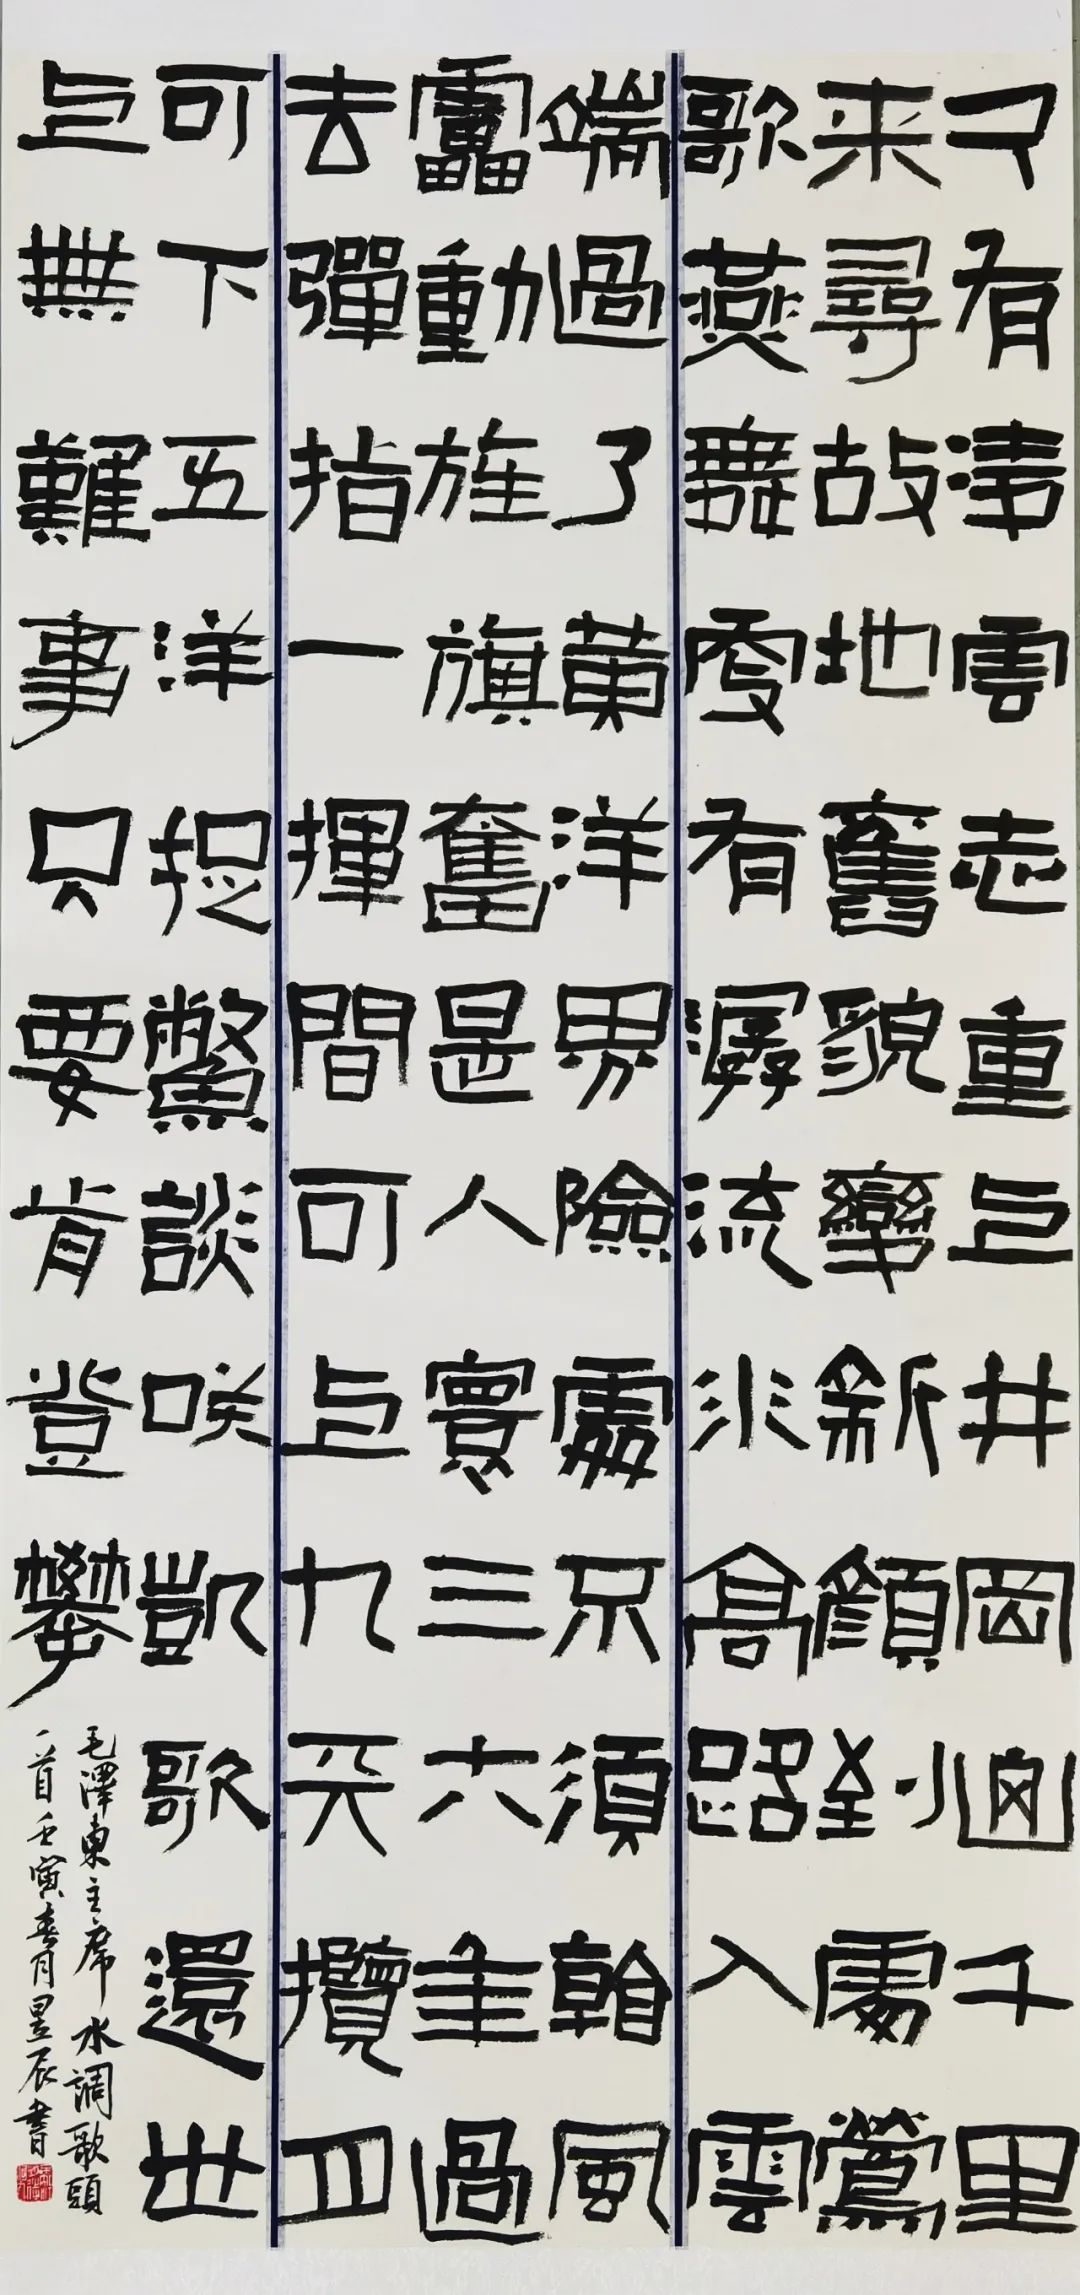 久有淩雲志重上井岡山千里
来尋故地舊貌變新顏到處鶯
歌燕舞更有潺流水高路入雲
端過了黃洋界險處不須看風
雷動旌旗奮是人寰三十八年過
去彈指一揮間可上九天攬月
可下五洋捉鱉談咲凱歌還世
上無難事只要肯登攀
毛澤東主席水調歌頭
一首壬寅春月昱辰書